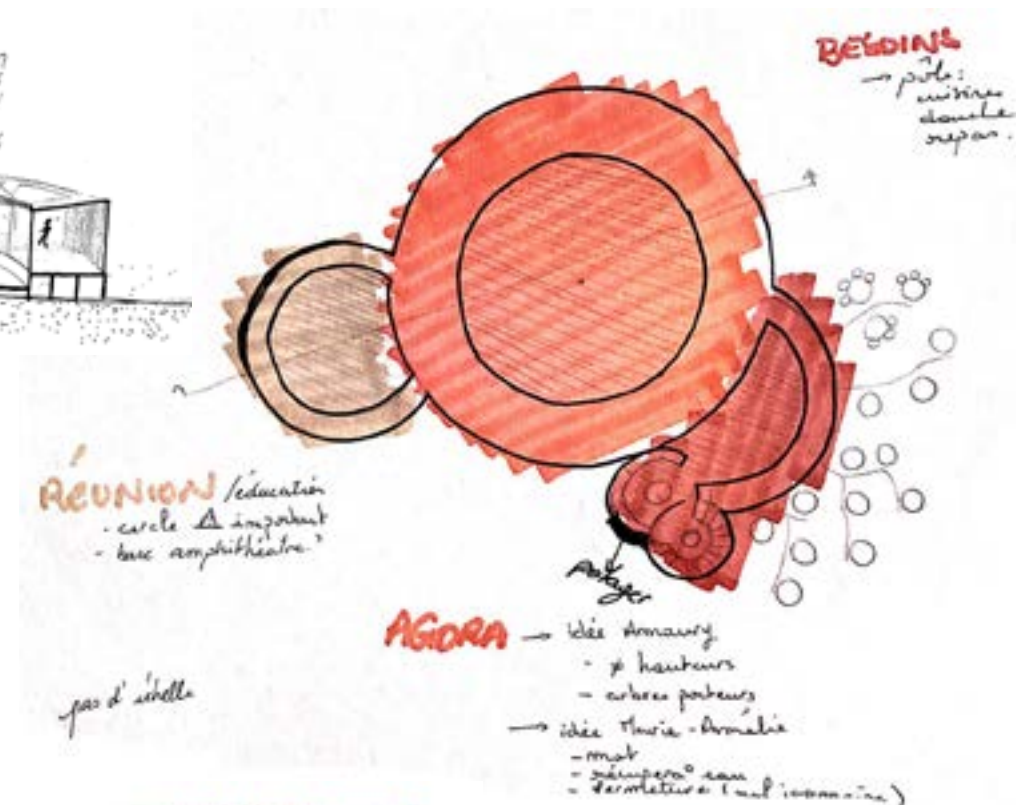 BESOINS
→ pôle:
cuisine
douche
repas.
RÉUNION /éducation
- cercle ⚠ important
- banc amphithéatre?
potager
AGORA → idée Amaury
- ≠ hauteurs
- arbres porteurs
pas d'échelle
→ idée Marie-Amélie
- mat
- récupera° eau
- fermeture